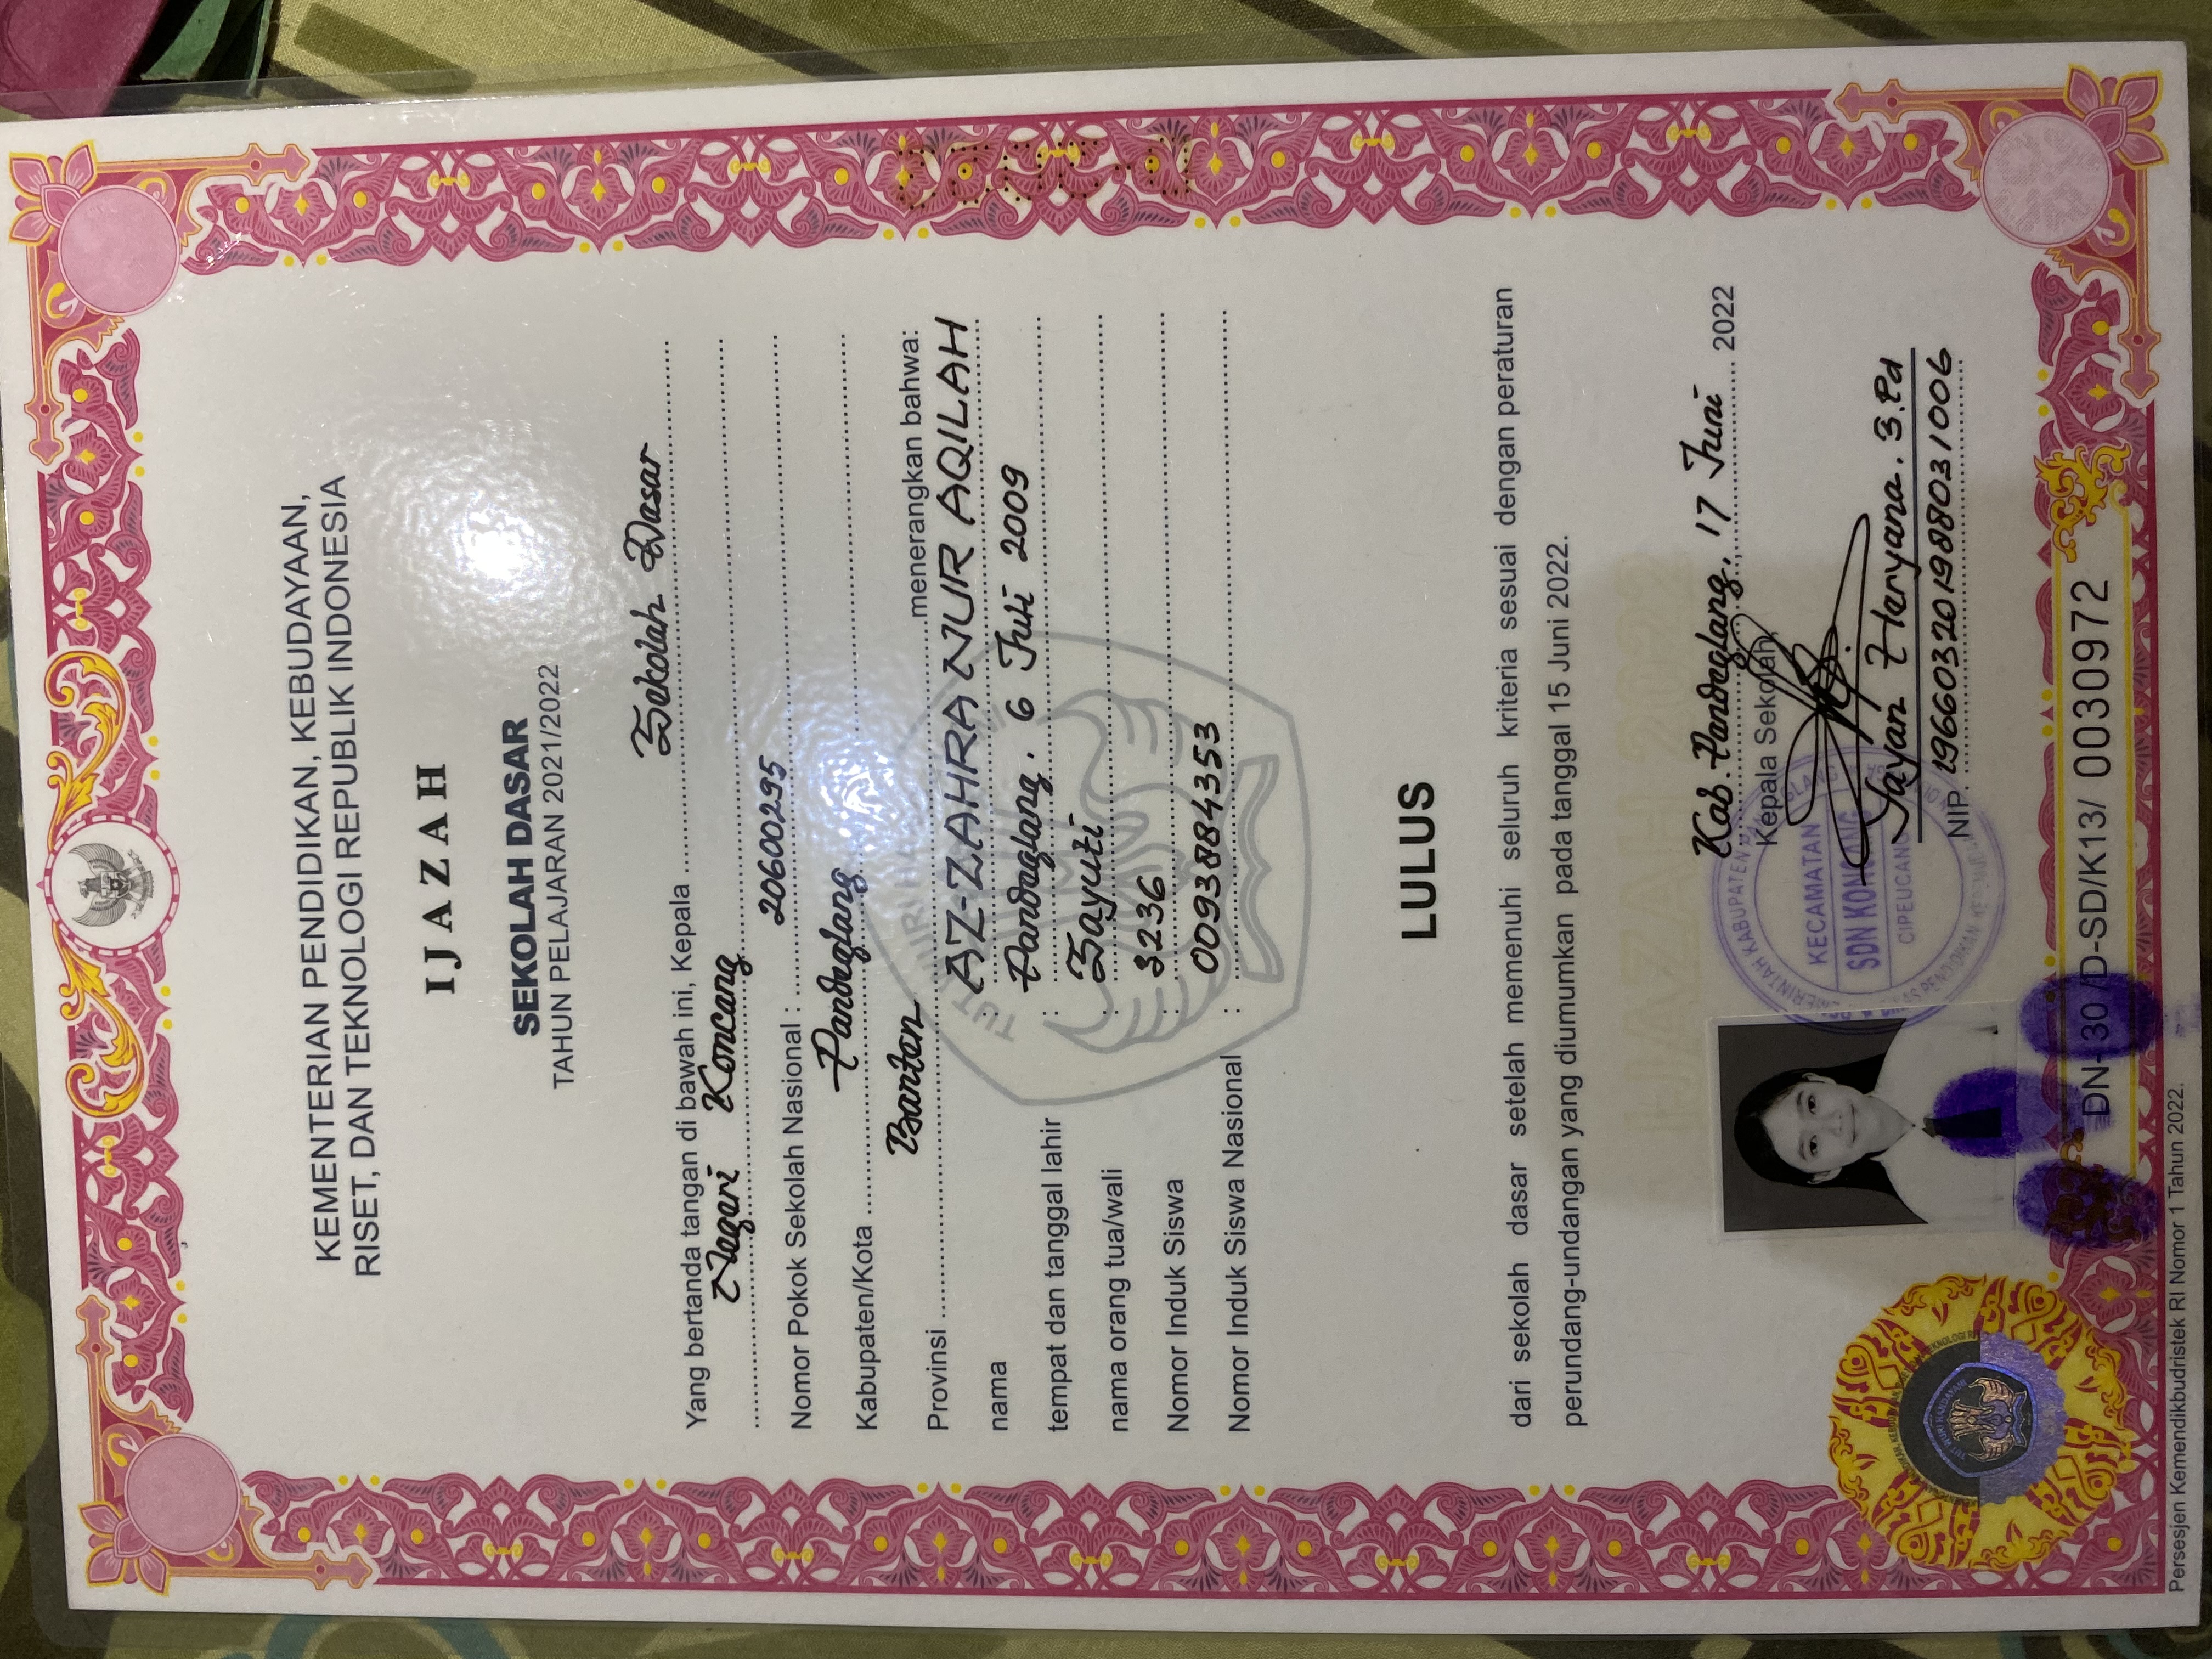 KEMENTERIAN PENDIDIKAN, KEBUDAYAAN,
RISET, DAN TEKNOLOGI REPUBLIK INDONESIA
IJAZAH
SEKOLAH DASAR
TAHUN PELAJARAN 2021/2022
Yang bertanda tangan di bawah ini, Kepala Sekolah Dasar
Negeri Koncang
Nomor Pokok Sekolah Nasional : 20600295
Kabupaten/Kota Pandeglang
Provinsi Banten menerangkan bahwa:
nama : AZ-ZAHRA NUR AQILAH
tempat dan tanggal lahir : Pandeglang, 6 Juli 2009
nama orang tua/wali : Sayuti
Nomor Induk Siswa : 3236
Nomor Induk Siswa Nasional : 0093884353
TUT WURI
LULUS
dari sekolah dasar setelah memenuhi seluruh kriteria sesuai dengan peraturan
perundang-undangan yang diumumkan pada tanggal 15 Juni 2022.
IJAZAH 2022
Kab. Pandeglang, 17 Juni 2022
Kepala Sekolah,
PEMERINTAH KABUPATEN PANDEGLANG
KECAMATAN
SDN KONCANG
CIPEUCANG
Yayan Haryana. S.Pd
NIP. 196603201988031006
TUT WURI HANDAYANI
DN- 30 /D-SD/K13/ 0030972
Persesjen Kemendikbudristek RI Nomor 1 Tahun 2022.